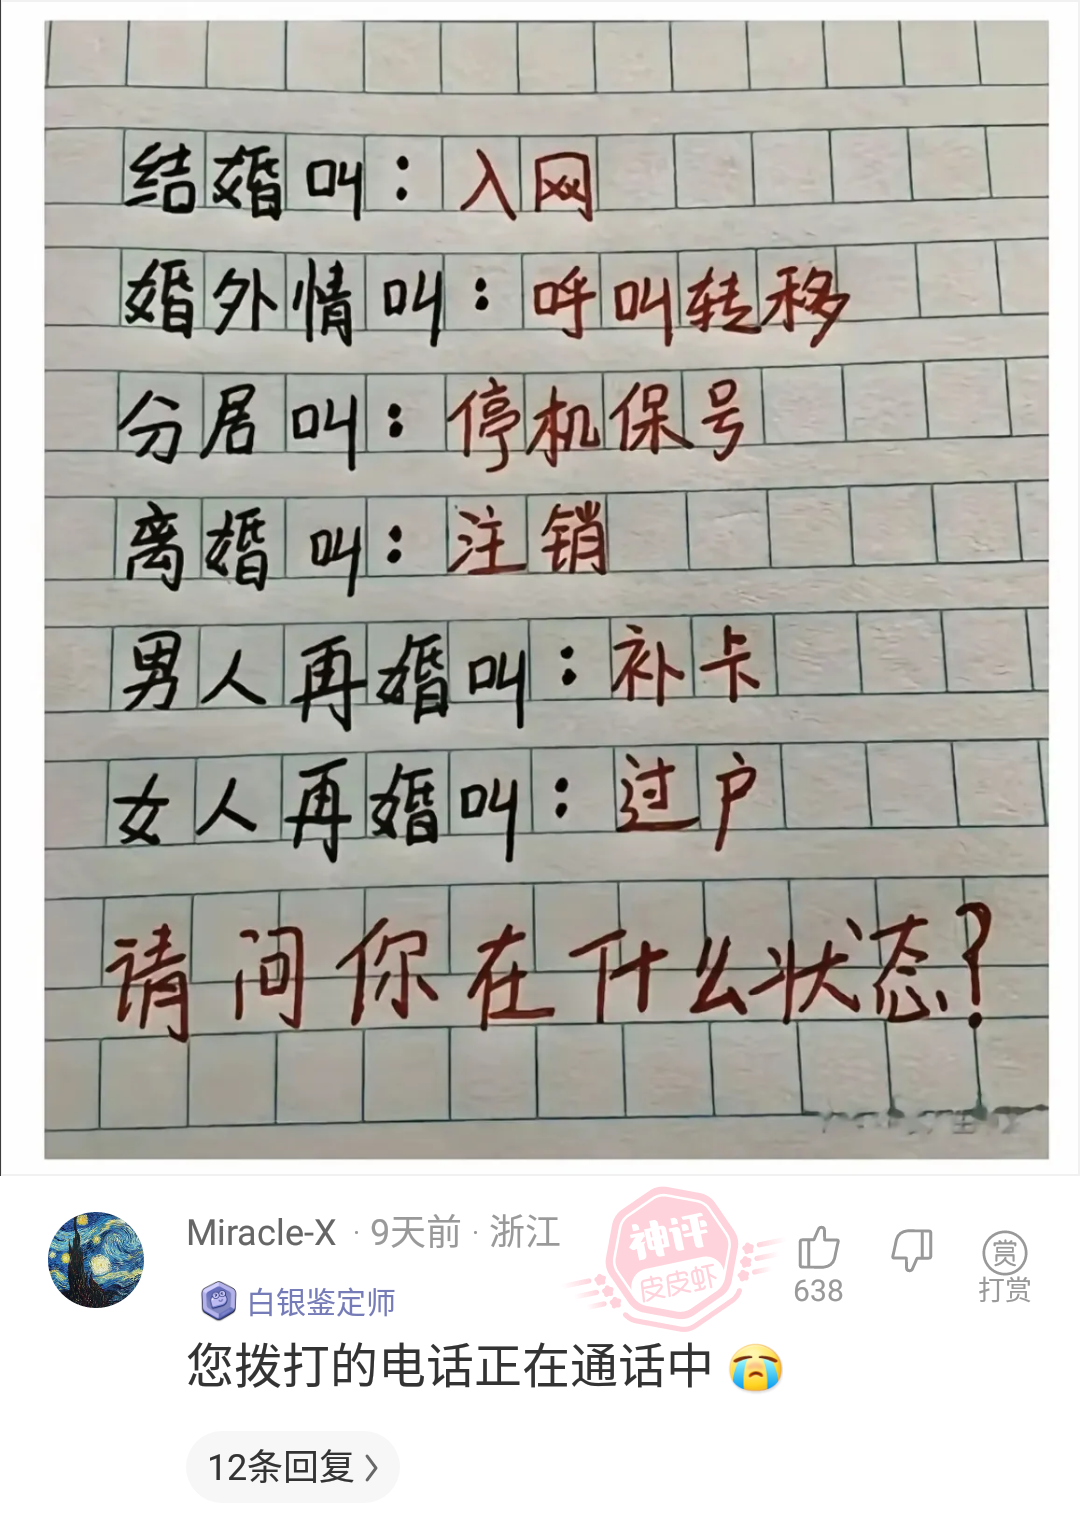 结婚叫：入网
婚外情叫：呼叫转移
分居叫：停机保号
离婚叫：注销
男人再婚叫：补卡
女人再婚叫：过户
请问你在什么状态？
Miracle-X · 9天前 · 浙江
神评
皮皮虾
638
赏
打赏
白银鉴定师
您拨打的电话正在通话中 😭
12条回复 >